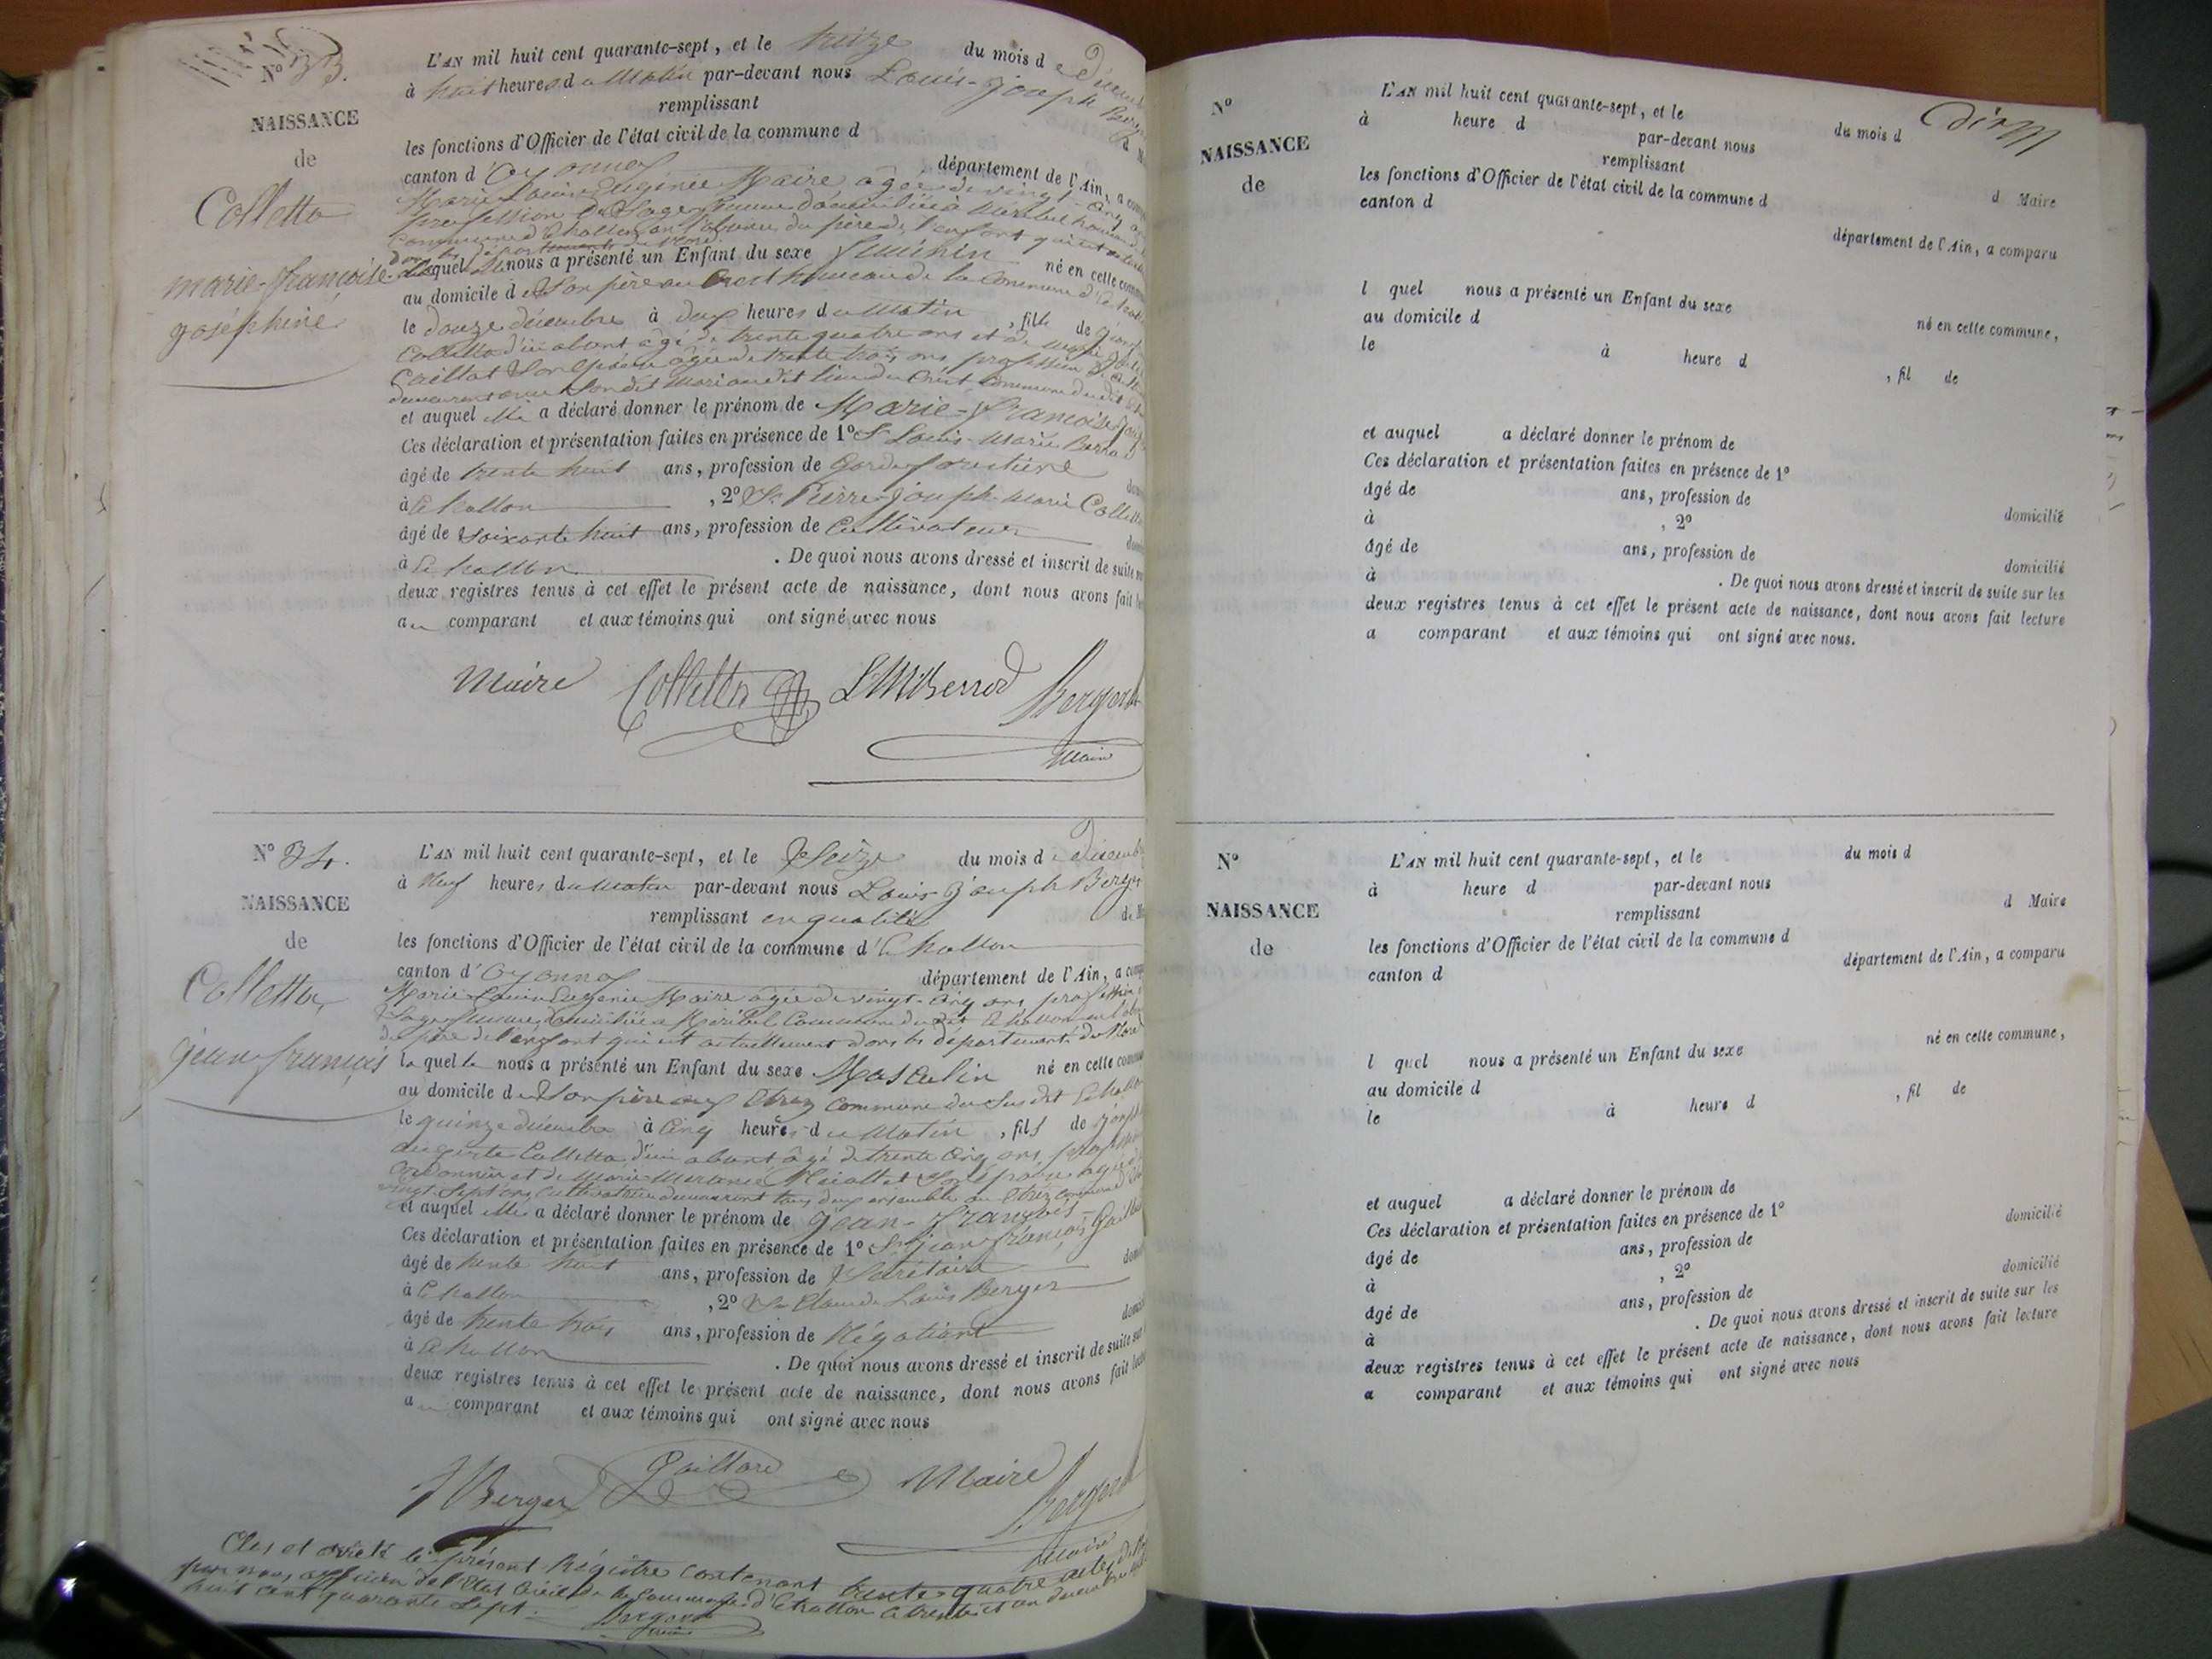 N° 33.
NAISSANCE
de
Colletta
marie-françoise
joséphine
L'AN mil huit cent quarante-sept, et le treize du mois d
à huit heures du Matin par-devant nous Louis-Joseph
remplissant
les fonctions d'Officier de l'état civil de la commune d
canton d'Oyonnax département de l'Ain, a
Marie Louise Eugénie Maire âgée de vingt-cinq
profession de Sage femme domiciliée à
Commune d'Echallon en l'absence du père de l'enfant qui est
laquelle nous a présenté un Enfant du sexe féminin né en cette
au domicile de Son père au Crest hameau de la Commune d'
le douze décembre à deux heures du Matin , fille de
Colletta d'ici absent âgé de trente quatre ans et de Marie
Caillat Son épouse âgée de trente trois ans profession
demeurant avec Son dit Mari au dit lieu du Crêt Commune du dit
et auquel elle a déclaré donner le prénom de Marie-françoise
Ces déclaration et présentation faites en présence de 1° Sr Louis-Marie
âgé de trente huit ans, profession de Garde forestière
à Echallon , 2° Sr Pierre-joseph-Marie Colletta
âgé de Soixante huit ans, profession de Cultivateur
à Echallon . De quoi nous avons dressé et inscrit de suite
deux registres tenus à cet effet le présent acte de naissance, dont nous avons fait
a comparant et aux témoins qui ont signé avec nous
Maire Colletta L M Bernod
Maire
N° 34.
NAISSANCE
de
Colletta,
jean-françois
L'AN mil huit cent quarante-sept, et le Seize du mois de
à Neuf heures du Matin par-devant nous Louis Joseph
remplissant en qualité
les fonctions d'Officier de l'état civil de la commune d'Echallon
canton d'Oyonnax département de l'Ain, a
Marie Louise Eugénie Maire âgée de vingt-cinq ans profession
Sage femme, domiciliée à Miribel Commune du dit Echallon en
du père de l'enfant qui est actuellement dans les départements du Nord
laquelle nous a présenté un Enfant du sexe Masculin né en cette
au domicile de Son père Commune du Sus dit
le quinze décembre à Cinq heures du Matin , fils de
auguste Colletta d'ici absent âgé de trente Cinq ans
Cordonnier et de Marie Son épouse âgée
vingt Sept ans Cultivatrice demeurant tous deux ensemble
et auquel elle a déclaré donner le prénom de jean-françois
Ces déclaration et présentation faites en présence de 1° Sr jean-françois
âgé de trente huit ans, profession de Secrétaire
à Echallon , 2° Sr Claude Louis Berger
âgé de trente trois ans, profession de Négotiant
à Echallon . De quoi nous avons dressé et inscrit de suite
deux registres tenus à cet effet le présent acte de naissance, dont nous avons fait
a comparant et aux témoins qui ont signé avec nous
Berger Gaillard Maire
Maire
Clos et arrêté le présent Régistre Contenant trente-quatre actes
par nous, officier de l'Etat Civil de la Commune d'Echallon le trente et un
huit cent quarante Sept.
N°
NAISSANCE
de
L'AN mil huit cent quarante-sept, et le du mois d
à heure d par-devant nous
remplissant d Maire
les fonctions d'Officier de l'état civil de la commune d
canton d département de l'Ain, a comparu
l quel nous a présenté un Enfant du sexe né en cette commune,
au domicile d
le à heure d , fil de
et auquel a déclaré donner le prénom de
Ces déclaration et présentation faites en présence de 1°
âgé de ans, profession de domicilié
à , 2°
âgé de ans, profession de domicilié
à . De quoi nous avons dressé et inscrit de suite sur les
deux registres tenus à cet effet le présent acte de naissance, dont nous avons fait lecture
a comparant et aux témoins qui ont signé avec nous.
N°
NAISSANCE
de
L'AN mil huit cent quarante-sept, et le du mois d
à heure d par-devant nous
remplissant d Maire
les fonctions d'Officier de l'état civil de la commune d
canton d département de l'Ain, a comparu
l quel nous a présenté un Enfant du sexe né en cette commune,
au domicile d
le à heure d , fil de
et auquel a déclaré donner le prénom de
Ces déclaration et présentation faites en présence de 1°
âgé de ans, profession de domicilié
à , 2°
âgé de ans, profession de domicilié
à . De quoi nous avons dressé et inscrit de suite sur les
deux registres tenus à cet effet le présent acte de naissance, dont nous avons fait lecture
a comparant et aux témoins qui ont signé avec nous